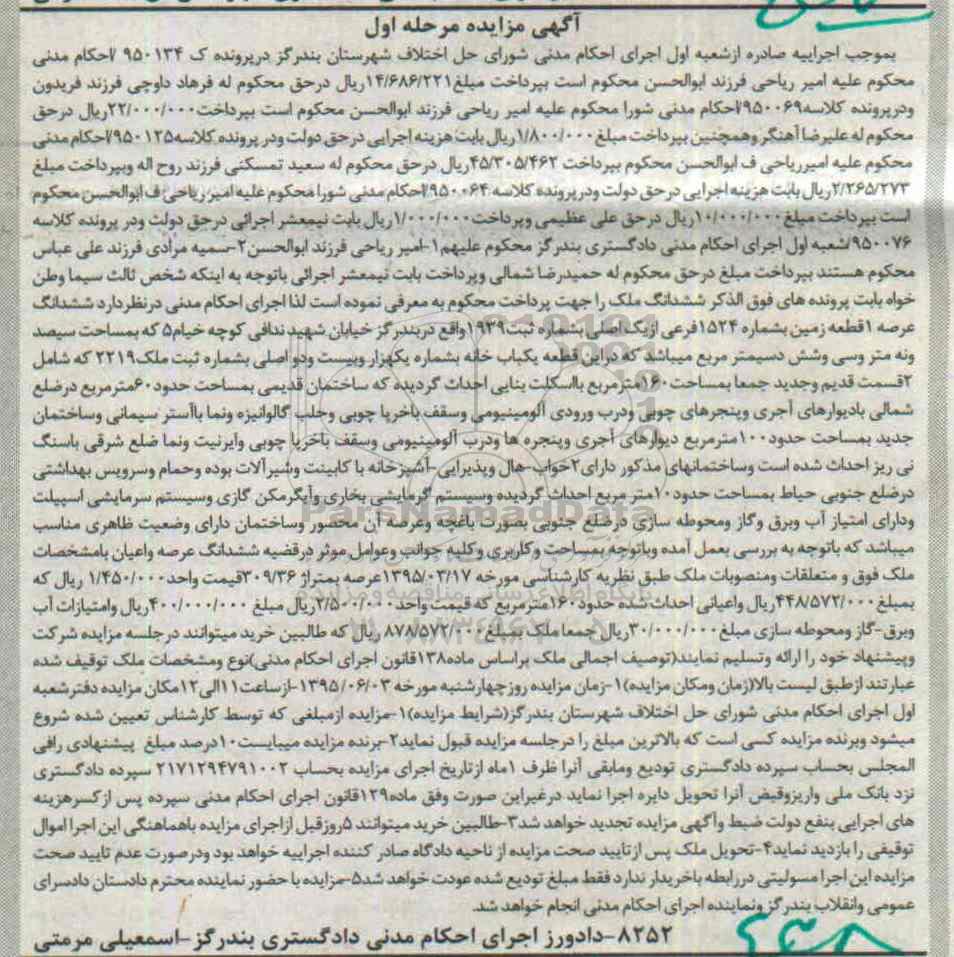 آگهی مزایده مرحله اول
بموجب اجراییه صادره ازشعبه اول اجرای احکام مدنی شورای حل اختلاف شهرستان بندرگز درپرونده ک ۹۵۰۱۳۴ /احکام مدنی
محکوم علیه امیر ریاحی فرزند ابوالحسن محکوم است بپرداخت مبلغ۱۴/۶۸۶/۲۲۱ریال درحق محکوم له فرهاد داوچی فرزند فریدون
ودرپرونده کلاسه۹۵۰۰۶۹/احکام مدنی شورا محکوم علیه امیر ریاحی فرزند ابوالحسن محکوم است بپرداخت۲۲/۰۰۰/۰۰۰ریال درحق
محکوم له علیرضا آهنگر وهمچنین بپرداخت مبلغ ۱/۸۰۰/۰۰۰ریال بابت هزینه اجرایی درحق دولت ودر پرونده کلاسه۹۵۰۱۲۵/احکام مدنی
محکوم علیه امیرریاحی ف ابوالحسن محکوم بپرداخت ۴۵/۳۰۵/۴۶۲ریال درحق محکوم له سعید تمسکنی فرزند روح اله وبپرداخت مبلغ
۲/۲۶۵/۲۷۳ریال بابت هزینه اجرایی درحق دولت ودرپرونده کلاسه ۹۵۰۰۶۴/احکام مدنی شورا محکوم علیه امیر ریاحی ف ابوالحسن محکوم
است بپرداخت مبلغ۱۰/۰۰۰/۰۰۰ریال درحق علی عظیمی وپرداخت۱/۰۰۰/۰۰۰ریال بابت نیمعشر اجرائی درحق دولت ودر پرونده کلاسه
۹۵۰۰۷۶/شعبه اول اجرای احکام مدنی دادگستری بندرگز محکوم علیهم ۱-امیر ریاحی فرزند ابوالحسن۲-سمیه مرادی فرزند علی عباس
محکوم هستند بپرداخت مبلغ درحق محکوم له حمیدرضا شمالی وپرداخت بابت نیمعشر اجرائی باتوجه به اینکه شخص ثالث سیما وطن
خواه بابت پرونده های فوق الذکر ششدانگ ملک را جهت پرداخت محکوم به معرفی نموده است لذا اجرای احکام مدنی درنظردارد ششدانگ
عرصه ۱قطعه زمین بشماره ۱۵۲۴فرعی ازیک اصلی بشماره ثبت۱۹۳۹واقع دربندرگز خیابان شهید ندافی کوچه خیام۵ که بمساحت سیصد
ونه متر وسی وشش دسیمتر مربع میباشد که دراین قطعه یکباب خانه بشماره یکهزار وبیست ودو اصلی بشماره ثبت ملک۲۲۱۹ که شامل
۲قسمت قدیم وجدید جمعا بمساحت۱۶۰مترمربع بااسکلت بنایی احداث گردیده که ساختمان قدیمی بمساحت حدود۶۰مترمربع درضلع
شمالی بادیوارهای آجری وپنجرهای چوبی ودرب ورودی آلومینیومی وسقف باخرپا چوبی وحلب گالوانیزه ونما باآستر سیمانی وساختمان
جدید بمساحت حدود۱۰۰مترمربع دیوارهای آجری وپنجره ها ودرب آلومینیومی وسقف باخرپا چوبی وایرنیت ونما ضلع شرقی باسنگ
نی ریز احداث شده است وساختمانهای مذکور دارای۲خواب-هال وپذیرایی-آشپزخانه با کابینت وشیرآلات بوده وحمام وسرویس بهداشتی
درضلع جنوبی حیاط بمساحت حدود۱۰متر مربع احداث گردیده وسیستم گرمایشی بخاری وآبگرمکن گازی وسیستم سرمایشی اسپیلت
ودارای امتیاز آب وبرق وگاز ومحوطه سازی درضلع جنوبی بصورت باغچه وعرصه آن محصور وساختمان دارای وضعیت ظاهری مناسب
میباشد که باتوجه به بررسی بعمل آمده وباتوجه بمساحت وکاربری وکلیه جوانب وعوامل موثر درقضیه ششدانگ عرصه واعیان بامشخصات
ملک فوق و متعلقات ومنصوبات ملک طبق نظریه کارشناسی مورخه ۱۳۹۵/۰۳/۱۷عرصه بمتراژ ۳۰۹/۳۶قیمت واحد ۱/۴۵۰/۰۰۰ ریال که
بمبلغ۴۴۸/۵۷۲/۰۰۰ریال واعیانی احداث شده حدود۱۶۰مترمربع که قیمت واحد۲/۵۰۰/۰۰۰ریال مبلغ ۴۰۰/۰۰۰/۰۰۰ریال وامتیازات آب
وبرق-گاز ومحوطه سازی مبلغ۳۰/۰۰۰/۰۰۰ریال جمعا ملک بمبلغ۸۷۸/۵۷۲/۰۰۰ریال که طالبین خرید میتوانند درجلسه مزایده شرکت
وپیشنهاد خود را ارائه وتسلیم نمایند(توصیف اجمالی ملک براساس ماده۱۳۸قانون اجرای احکام مدنی)نوع ومشخصات ملک توقیف شده
عبارتند ازطبق لیست بالا(زمان ومکان مزایده)۱-زمان مزایده روزچهارشنبه مورخه ۱۳۹۵/۰۶/۰۳-ازساعت۱۱الی۱۲مکان مزایده دفترشعبه
اول اجرای احکام مدنی شورای حل اختلاف شهرستان بندرگز(شرایط مزایده)۱-مزایده ازمبلغی که توسط کارشناس تعیین شده شروع
میشود وبرنده مزایده کسی است که بالاترین مبلغ را درجلسه مزایده قبول نماید۲-برنده مزایده میبایست۱۰درصد مبلغ پیشنهادی رافی
المجلس بحساب سپرده دادگستری تودیع ومابقی آنرا ظرف ۱ماه ازتاریخ اجرای مزایده بحساب ۲۱۷۱۲۹۴۷۹۱۰۰۲ سپرده دادگستری
نزد بانک ملی واریزوقبض آنرا تحویل دایره اجرا نماید درغیراین صورت وفق ماده۱۲۹قانون اجرای احکام مدنی سپرده پس ازکسرهزینه
های اجرایی بنفع دولت ضبط وآگهی مزایده تجدید خواهد شد۳-طالبین خرید میتوانند ۵روزقبل ازاجرای مزایده باهماهنگی این اجرا اموال
توقیفی را بازدید نماید۴-تحویل ملک پس ازتایید صحت مزایده از ناحیه دادگاه صادر کننده اجراییه خواهد بود ودرصورت عدم تایید صحت
مزایده این اجرا مسولیتی دررابطه باخریدار ندارد فقط مبلغ تودیع شده عودت خواهد شد۵-مزایده با حضور نماینده محترم دادستان دادسرای
عمومی وانقلاب بندرگز ونماینده اجرای احکام مدنی انجام خواهد شد.
۸۲۵۲-دادورز اجرای احکام مدنی دادگستری بندرگز-اسمعیلی مرمتی
ParsNamadData
پایگاه اطلاع رسانی مناقصه و مزایده